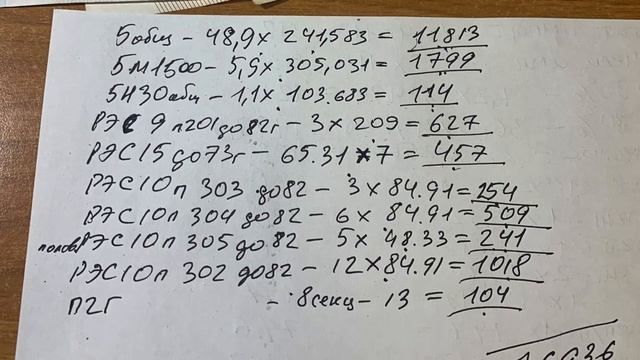 5общ - 48,9 x 241,583 = 11813
5М1500 - 5,9 x 305,031 = 1799
5Н30общ - 1,1 x 103.683 = 114
РЭС 9 п201 до 82г - 3 x 209 = 627
РЭС15 до 73г - 65.31 x 7 = 457
РЭС10п 303 до 82 - 3 x 84.91 = 254
РЭС10п 304 до 82 - 6 x 84.91 = 509
полов РЭС10п 305 до 82 - 5 x 48.33 = 241
РЭС10п 302 до 82 - 12 x 84.91 = 1018
П2Г - 8секц - 13 = 104